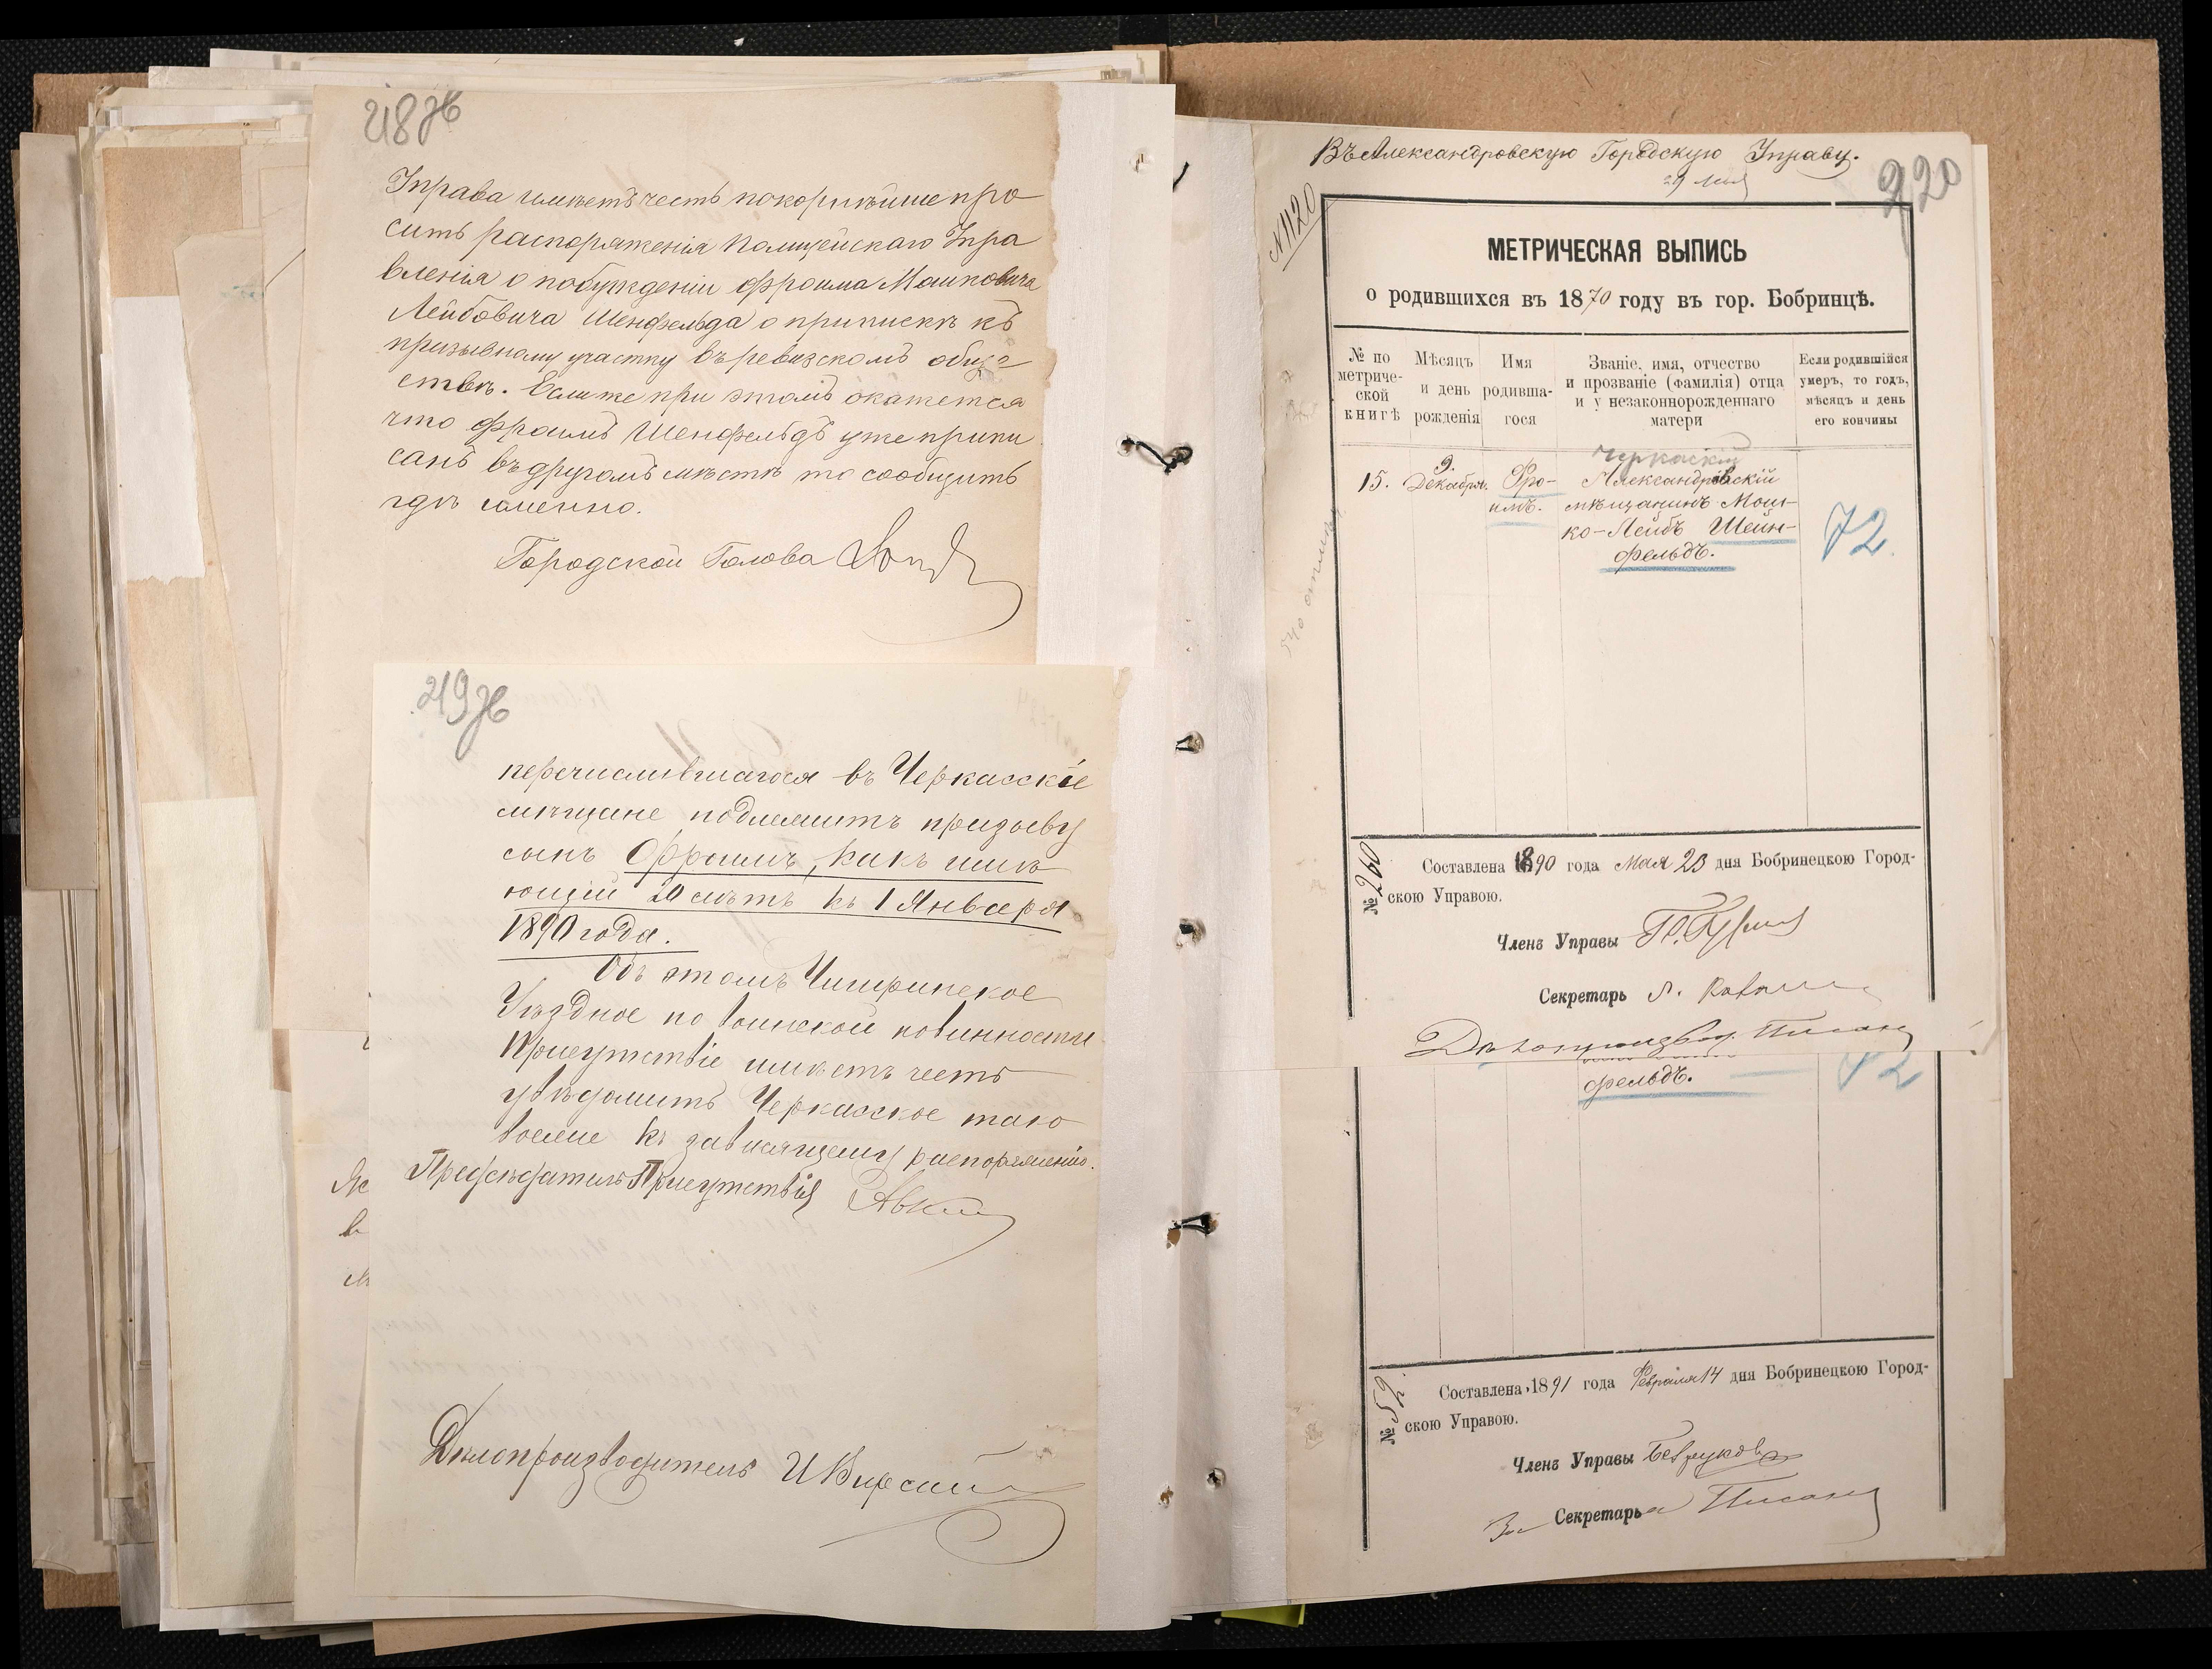 218 об
Управа имѣетъ честь покорнѣйше про
сить распоряженія Полицейскаго Упра
вленія о побужденіи Фроима Мошковича
Лейбовича Шенфельда о припискѣ къ
призывному участку въ ревизскомъ обще
ствѣ. Если же при этомъ окажется
что Фроимъ Шенфельдъ уже припи
санъ въ другомъ мѣстѣ то сообщить
гдѣ именно.
Городской Голова
219 об
перечислившагося въ Черкасскіе
мѣщане подлежитъ призыву
сынъ Фроимъ, какъ имѣ
ющій 20 лѣтъ къ 1 Января
1890 года.
Объ этомъ Чигиринское
Уѣздное по воинской повинности
Присутствіе имѣетъ честь
увѣдомить Черкасское тако
вое же къ зависящему распоряженію.
Предсѣдатель Присутствія
Дѣлопроизводитель
Въ Александровскую Городскую Управу.
220
№ 1120
МЕТРИЧЕСКАЯ ВЫПИСЬ
о родившихся въ 1870 году въ гор. Бобринцѣ.
№ по метриче-ской книгѣ
Мѣсяцъ и день рожденія
Имя родивша-гося
Званіе, имя, отчество и прозваніе (фамилія) отца и у незаконнорожденнаго матери
Если родившійся умеръ, то годъ, мѣсяцъ и день его кончины
Черкаскій
15. 9. Декабря. Фро-имъ. Александрівскій
мѣщанинъ Мош-
ко-Лейбъ Шеин-
фельдъ.
72
№ 260
Составлена 1890 года Мая 23 дня Бобринецкою Город-
скою Управою.
Членъ Управы
Секретарь
Дѣлопроизвод. Писан
фельдъ.
72
№ 52.
Составлена 1891 года Февраля 14 дня Бобринецкою Город-
скою Управою.
Членъ Управы
За Секретаря